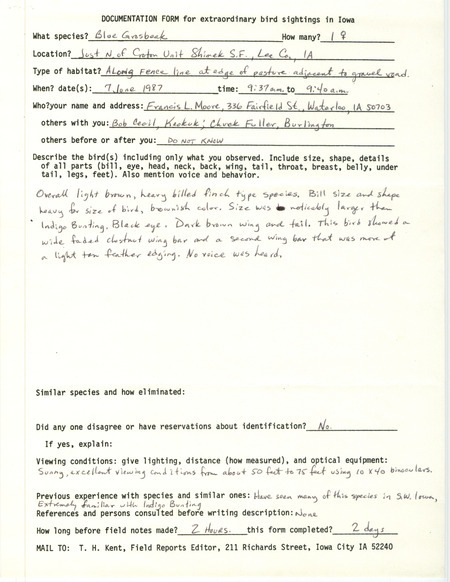 DOCUMENTATION FORM for extraordinary bird sightings in Iowa
What species? Blue Grosbeak How many? 1 ♀
Location? Just N. of Croton Unit Shimek S.F., Lee Co., IA
Type of habitat? Along fence line at edge of pasture adjacent to gravel road.
When? date(s): 7 June 1987 time: 9:37 am to 9:40 a.m.
Who? your name and address: Francis L. Moore, 336 Fairfield St., Waterloo, IA 50703
others with you: Bob Cecil, Keokuk; Chuck Fuller, Burlington
others before or after you: DO NOT KNOW
Describe the bird(s) including only what you observed. Include size, shape, details
of all parts (bill, eye, head, neck, back, wing, tail, throat, breast, belly, under
tail, legs, feet). Also mention voice and behavior.
Overall light brown, heavy billed finch type species. Bill size and shape
heavy for size of bird, brownish color. Size was noticably larger than
Indigo Bunting. Black eye. Dark brown wing and tail. This bird showed a
wide faded chestnut wing bar and a second wing bar that was more of
a light tan feather edging. No voice was heard.
Similar species and how eliminated:
Did any one disagree or have reservations about identification? No.
If yes, explain:
Viewing conditions: give lighting, distance (how measured), and optical equipment:
Sunny, excellent viewing conditions from about 50 feet to 75 feet using 10 x 40 binoculars.
Previous experience with species and similar ones: Have seen many of this species in S.W. Iowa,
Extremely familiar with Indigo Bunting
References and persons consulted before writing description: None
How long before field notes made? 2 Hours. this form completed? 2 days
MAIL TO: T. H. Kent, Field Reports Editor, 211 Richards Street, Iowa City IA 52240